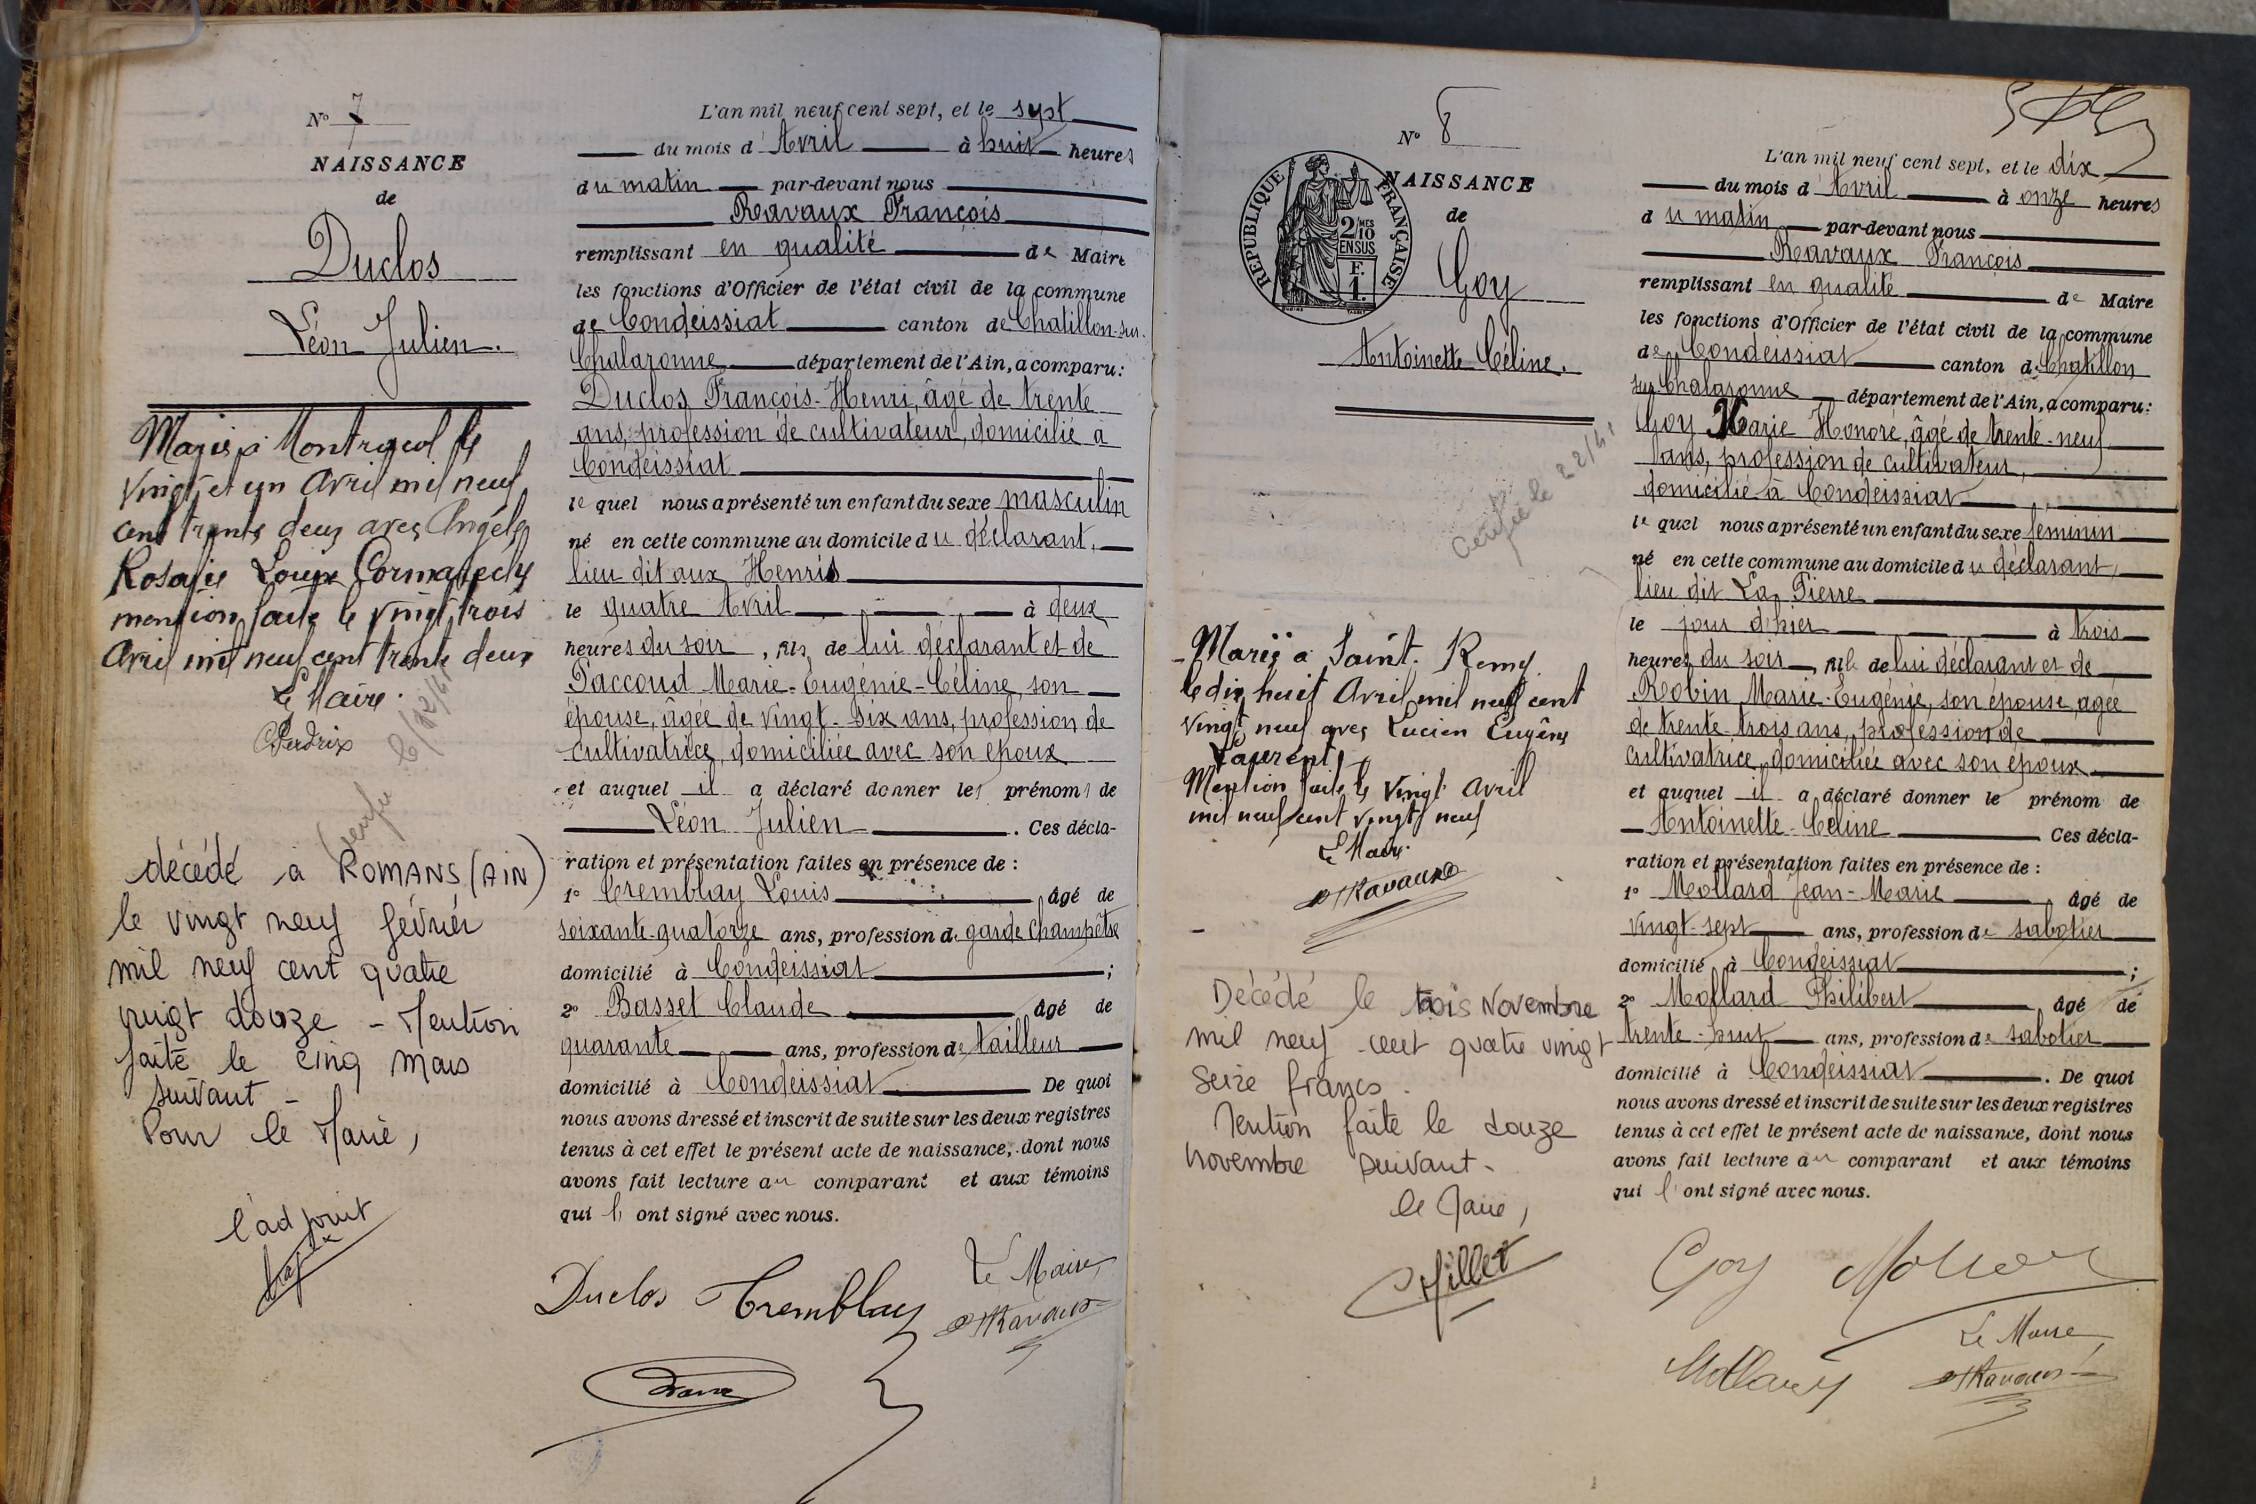 N° 7
NAISSANCE
de
Duclos
Léon Julien.
Marié à Montracol le
vingt et un Avril mil neuf
cent trente deux avec Angèle
Rosalie Louise
mention faite le vingt trois
Avril mil neuf cent trente deux
Le Maire.
Perdrix
décédé à ROMANS (AIN)
le vingt neuf février
mil neuf cent quatre
vingt douze - Mention
faite le cinq mars
suivant -
Pour le Maire,
l'adjoint
L'an mil neuf cent sept, et le sept
du mois d'Avril à huit heures
du matin par-devant nous
Ravaux François
remplissant en qualité de Maire
les fonctions d'Officier de l'état civil de la commune
de Condeissiat canton de Chatillon-sur-
Chalaronne département de l'Ain, a comparu:
Duclos François-Henri, âgé de trente
ans, profession de cultivateur, domicilié à
Condeissiat
le quel nous a présenté un enfant du sexe masculin
né en cette commune au domicile du déclarant,
lieu dit aux Henris
le quatre Avril à deux
heures du soir, fils de lui déclarant et de
Paccoud Marie-Eugénie-Céline, son
épouse, âgée de vingt-six ans, profession de
cultivatrice, domiciliée avec son époux
et auquel il a déclaré donner les prénoms de
Léon Julien. Ces décla-
ration et présentation faites en présence de :
1° Tremblay Louis, âgé de
soixante-quatorze ans, profession de garde champêtre
domicilié à Condeissiat ;
2° Basset Claude âgé de
quarante ans, profession de tailleur
domicilié à Condeissiat De quoi
nous avons dressé et inscrit de suite sur les deux registres
tenus à cet effet le présent acte de naissance, dont nous
avons fait lecture au comparant et aux témoins
qui l'ont signé avec nous.
Duclos Tremblay Le Maire,
Ravaux
N° 8
NAISSANCE
de
RÉPUBLIQUE FRANÇAISE
2/10 MES
EN SUS
F.
1.
Goy
Antoinette Céline.
Marié à Saint-Remy
le dix huit Avril mil neuf cent
vingt neuf avec Lucien Eugène
Laurent
Mention faite le vingt Avril
mil neuf cent vingt neuf
Le Maire.
Ravaux
Décédé le trois Novembre
mil neuf cent quatre vingt
seize francs.
Mention faite le douze
novembre suivant.
le Maire,
Millet
L'an mil neuf cent sept, et le dix
du mois d'Avril à onze heures
du matin par-devant nous
Ravaux François
remplissant en qualité de Maire
les fonctions d'Officier de l'état civil de la commune
de Condeissiat canton de Chatillon
sur Chalaronne département de l'Ain, a comparu:
Goy Marie Honoré, âgé de trente-neuf
ans, profession de cultivateur,
domicilié à Condeissiat
le quel nous a présenté un enfant du sexe féminin
né en cette commune au domicile du déclarant,
lieu dit La Pierre
le jour d'hier à trois
heures du soir, fille de lui déclarant et de
Robin Marie-Eugénie, son épouse, agée
de trente-trois ans, profession de
cultivatrice, domiciliée avec son époux
et auquel il a déclaré donner le prénom de
Antoinette-Céline Ces décla-
ration et présentation faites en présence de :
1° Mollard Jean-Marie, âgé de
vingt-sept ans, profession de sabotier
domicilié à Condeissiat ;
2° Mollard Philibert âgé de
trente-huit ans, profession de sabotier
domicilié à Condeissiat. De quoi
nous avons dressé et inscrit de suite sur les deux registres
tenus à cet effet le présent acte de naissance, dont nous
avons fait lecture au comparant et aux témoins
qui l'ont signé avec nous.
Goy
Le Maire,
Mollard Ravaux